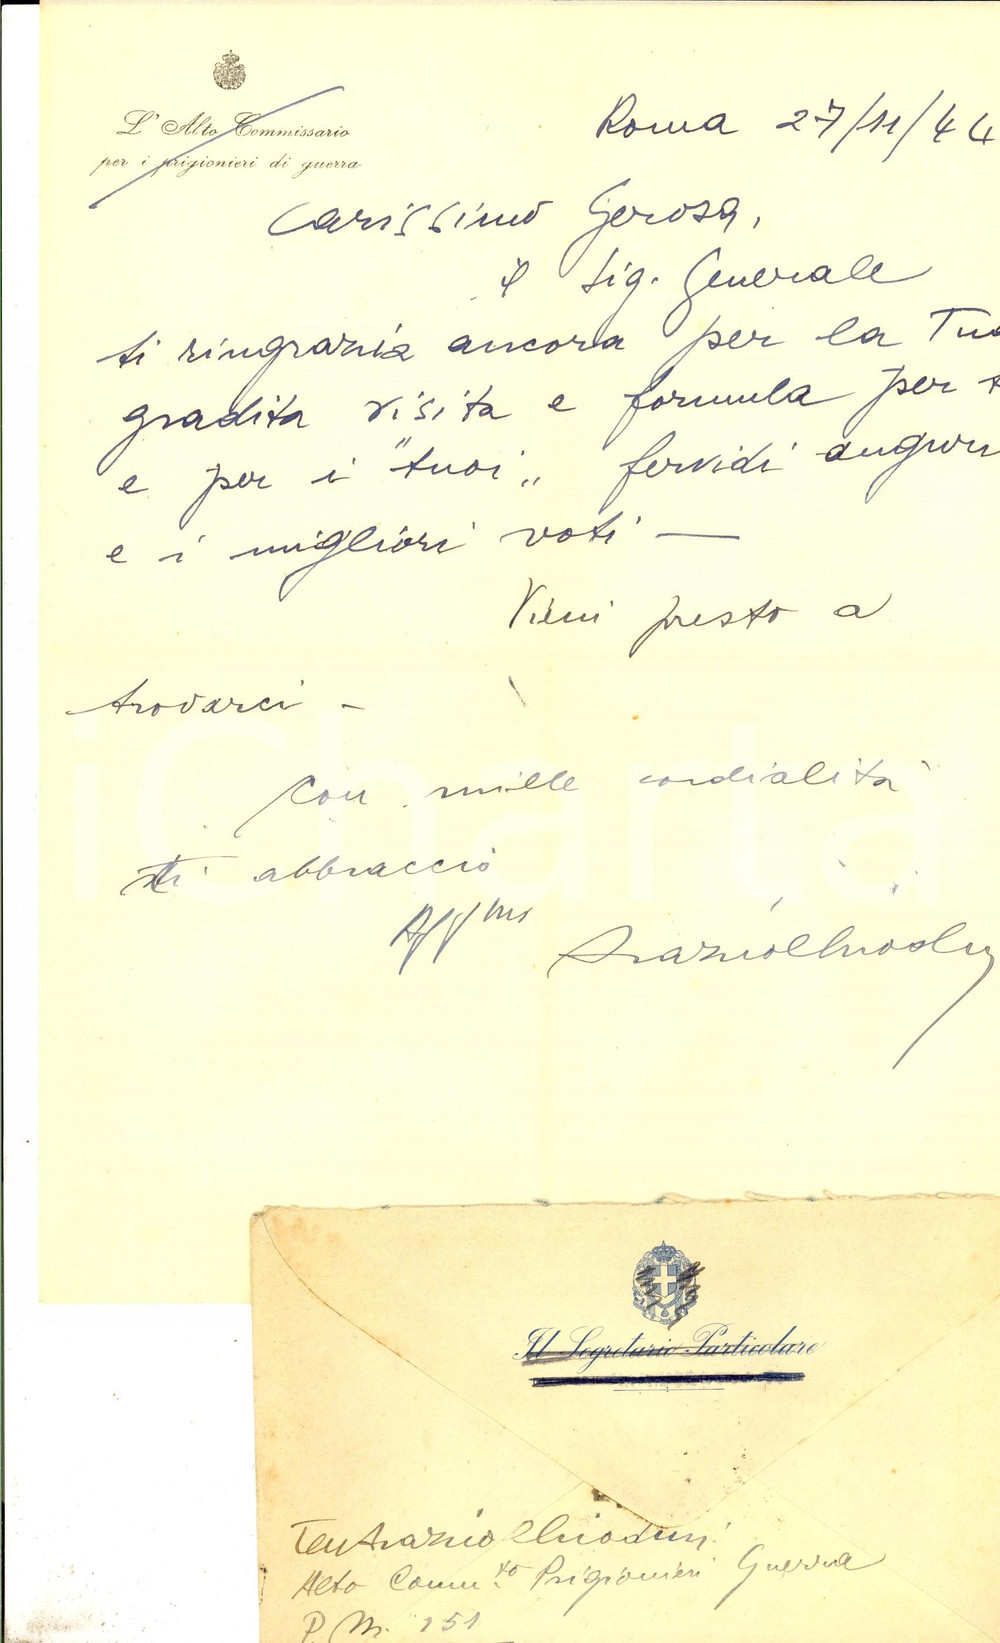 L'Alto Commissario
per i prigionieri di guerra
Roma 27/11/44
Carissimo Gerosa,
il Sig. Generale
ti ringrazia ancora per la Tua
gradita visita e formula per t
e per i "tuoi" fervidi auguri
e i migliori voti —
Vieni presto a
trovarci -
Con mille cordialità
ti abbraccio
Aff/mo
iCharta
Il Segretario Particolare
Ten
Alto Comm.to Prigionieri Guerra
P. M. 151